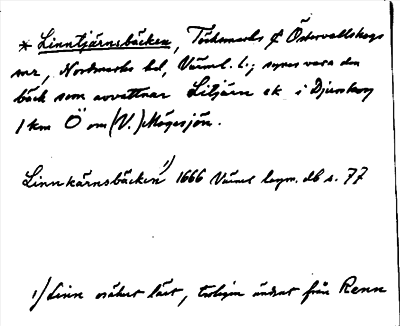 * Linntjärnsbäcken, Töcksmarks & Östervallskogs
snr, Nordmarks hd, Värml. l.; synes vara den
bäck som avvattnar Liltjärn ek i Djurskog
1 km Ö om (V.) Mögesjön.
Linnkärnsbäcken 1) 1666 Värml lagm. db s. 77
1) Linn osäkert läst, troligen ändrat från Renn